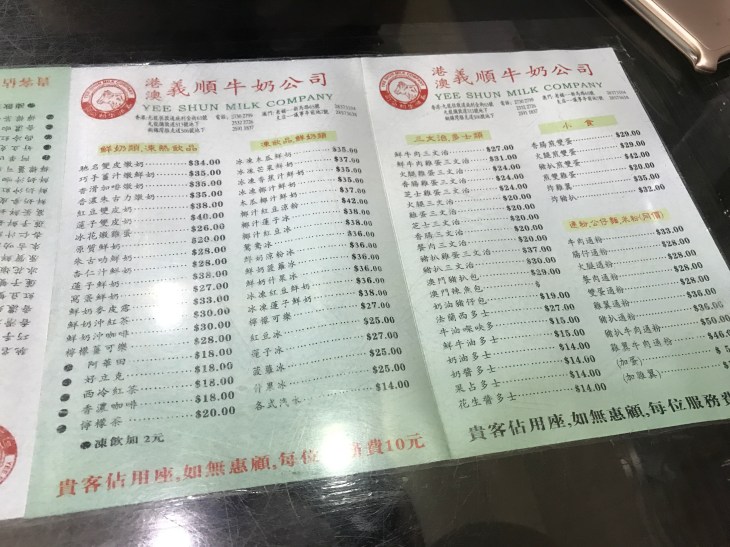 港澳 義順牛奶公司
YEE SHUN MILK COMPANY
鮮奶類,凍熱飲品
馳名雙皮燉奶 $34.00
巧手薑汁燉鮮奶 $35.00
香滑咖啡燉奶 $35.00
香濃朱古力燉奶 $35.00
紅豆雙皮奶 $38.00
蓮子雙皮奶 $40.00
冰花燉雞蛋 $26.00
原質鮮奶 $20.00
朱古叻鮮奶 $28.00
杏仁汁鮮奶 $28.00
蓮子鮮奶 $38.00
窩蛋鮮奶 $27.00
鮮奶麥皮露 $33.00
鮮奶沖紅茶 $30.00
鮮奶沖咖啡 $30.00
檸檬薑可樂 $28.00
阿華田 $18.00
好立克 $18.00
西冷紅茶 $18.00
香濃咖啡 $18.00
檸檬茶 $20.00
●凍飲加 2元
凍飲品鮮奶類
冰凍木瓜鮮奶 $35.00
冰凍芒果鮮奶 $37.00
冰凍香蕉汁鮮奶 $35.00
冰凍椰汁鮮奶 $37.00
木瓜椰汁鮮奶 $42.00
椰汁紅豆涼粉 $38.00
椰汁蓮子冰 $38.00
椰汁紅豆冰
鴛鴦冰 $36.00
鮮奶涼粉冰 $36.00
鮮奶菠蘿冰 $36.00
鮮奶什果冰 $36.00
冰凍紅豆鮮奶 $36.00
冰凍蓮子鮮奶 $38.00
檸檬可樂 $27.00
紅豆冰 $25.00
蓮子冰 $27.00
菠蘿冰 $25.00
什果冰 $25.00
各式汽水 $14.00
貴客佔用座,如無惠顧,每位 務費10元
港澳 義順牛奶公司
YEE SHUN MILK COMPANY
三文治,多士類
鮮牛肉三文治 $27.00
鮮牛肉雞蛋三文治 $31.00
火腿雞蛋三文治 $24.00
香腸雞蛋三文治 $24.00
芝士雞蛋三文治 $24.00
火腿三文治 $20.00
雞蛋三文治 $20.00
芝士三文治 $20.00
香腸三文治 $20.00
餐肉三文治 $20.00
豬扒雞蛋三文治 $37.00
豬扒三文治 $27.00
澳門豬扒包 $30.00
奶油豬仔包 $19.00
法蘭西多士 $27.00
鮮牛油多士 $15.00
奶油多士 $14.00
奶醬多士 $14.00
花生醬多士 $14.00
小食
香腸煎雙蛋 $29.00
火腿煎雙蛋 $29.00
豬扒煎雙蛋 $42.00
煎雙蛋 $20.00
炸雞翼 $35.00
炸豬扒 $32.00
通粉,公仔麵,米粉(同價)
牛肉通粉 $33.00
腸仔通粉 $28.00
火腿通粉 $28.00
餐肉通粉 $28.00
雙蛋通粉 $28.00
雞翼通粉 $36.00
豬扒通粉 $36.00
豬扒牛肉通粉 $50.00
雞翼牛肉通粉 $46.00
(加蛋) $ 5
(加雞翼)
貴客佔用座,如無惠顧,每位服務費